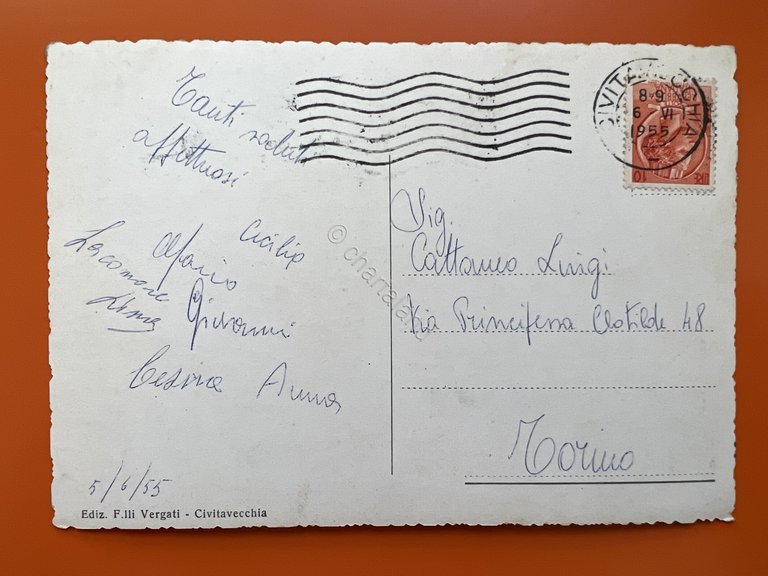 Tanti saluti
affettuosi
Cicilia
Mario
Giovanni
Cesira Anna
5/6/55
Ediz. F.lli Vergati - Civitavecchia
CIVITAVECCHIA
8-9
6 VI
1955
LIRE 10
Sig.
Cattaneo Luigi
Via Principessa Clotilde 48
Torino